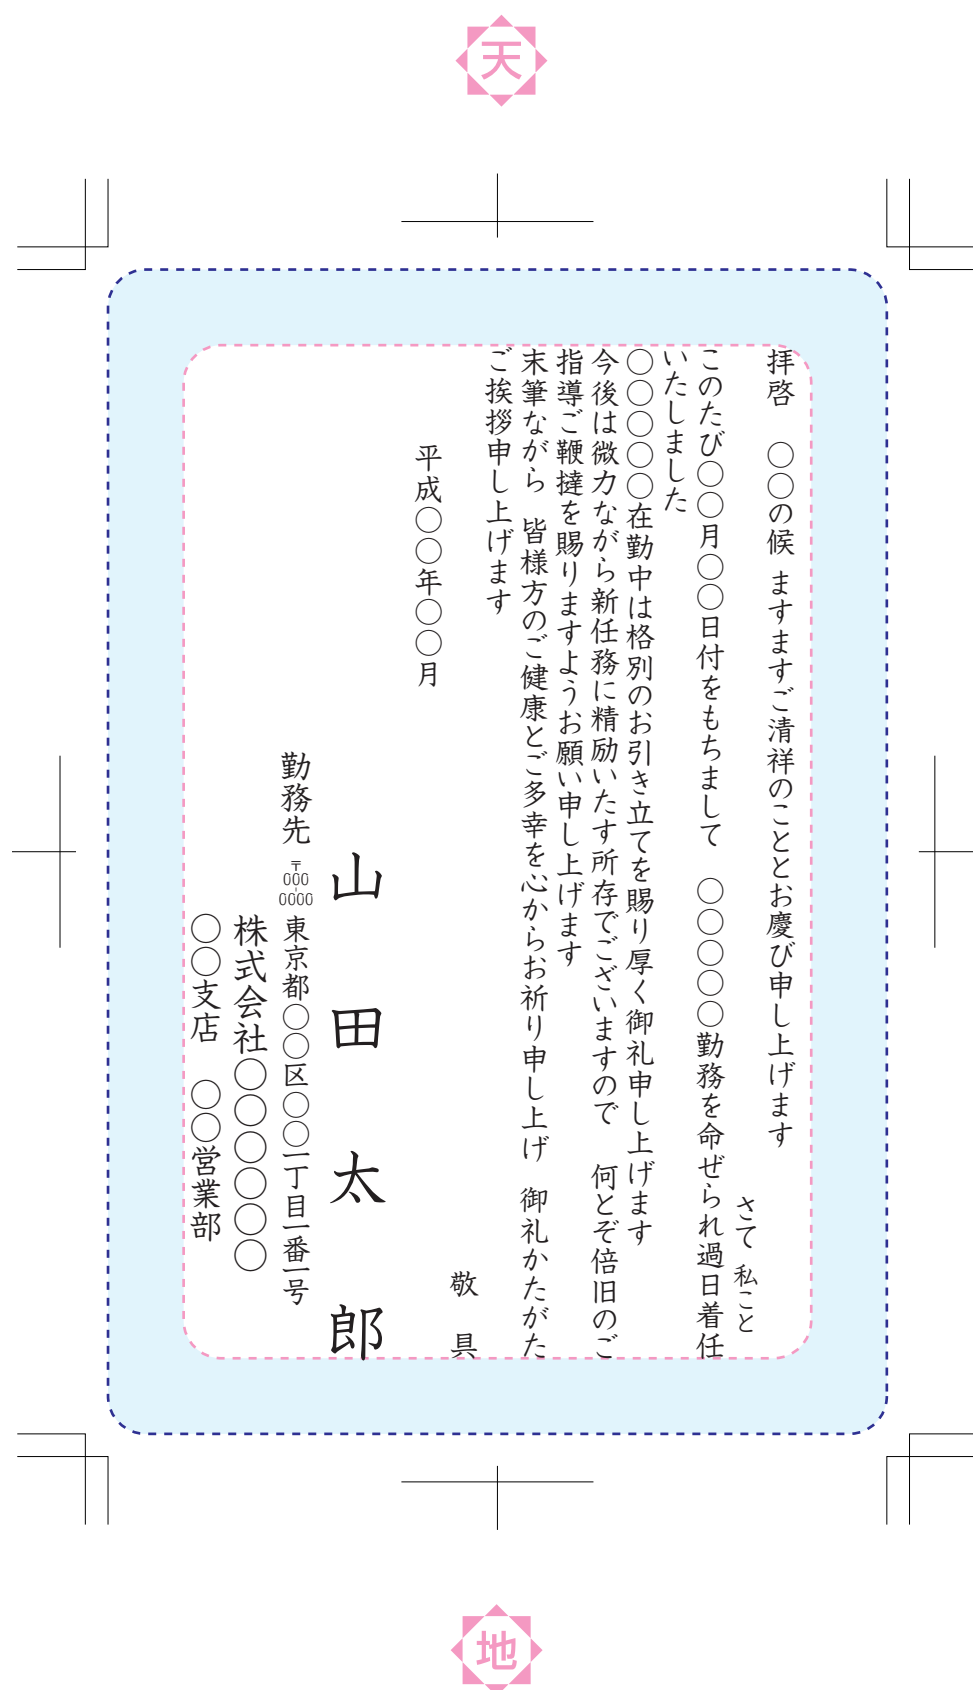 天
拝啓　〇〇の候 ますますご清祥のこととお慶び申し上げます
さて 私こと
このたび〇〇月〇〇日付をもちまして　〇〇〇〇〇勤務を命ぜられ過日着任
いたしました
〇〇〇〇〇在勤中は格別のお引き立てを賜り厚く御礼申し上げます
今後は微力ながら新任務に精励いたす所存でございますので　何とぞ倍旧のご
指導ご鞭撻を賜りますようお願い申し上げます
末筆ながら 皆様方のご健康とご多幸を心からお祈り申し上げ 御礼かたがた
ご挨拶申し上げます
敬　具
平成〇〇年〇〇月
山田太郎
勤務先 〒000-0000 東京都〇〇区〇〇一丁目一番一号
株式会社〇〇〇〇〇〇
〇〇支店　〇〇営業部
地